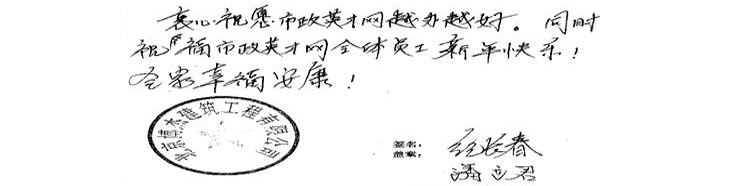 衷心祝愿市政英才网越办越好。同时
祝福市政英才网全体员工新年快乐！
全家幸福安康！
北京精杰建筑工程有限公司
签名：
盖章：
经长春
潘立君